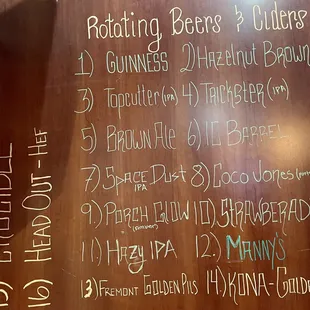 Rotating Beers & Ciders
1) GUINNESS 2) Hazelnut Brown
3) Topcutter (IPA) 4) Trickster (IPA)
5) Brown Ale 6) 10 Barrel
7) Space Dust IPA 8) Coco Jones
9) Porch Glow 10) Strawberad
11) Hazy IPA 12) Manny's
13) Fremont Golden Pils 14) Kona-Golde
16) HEAD OUT - Hef